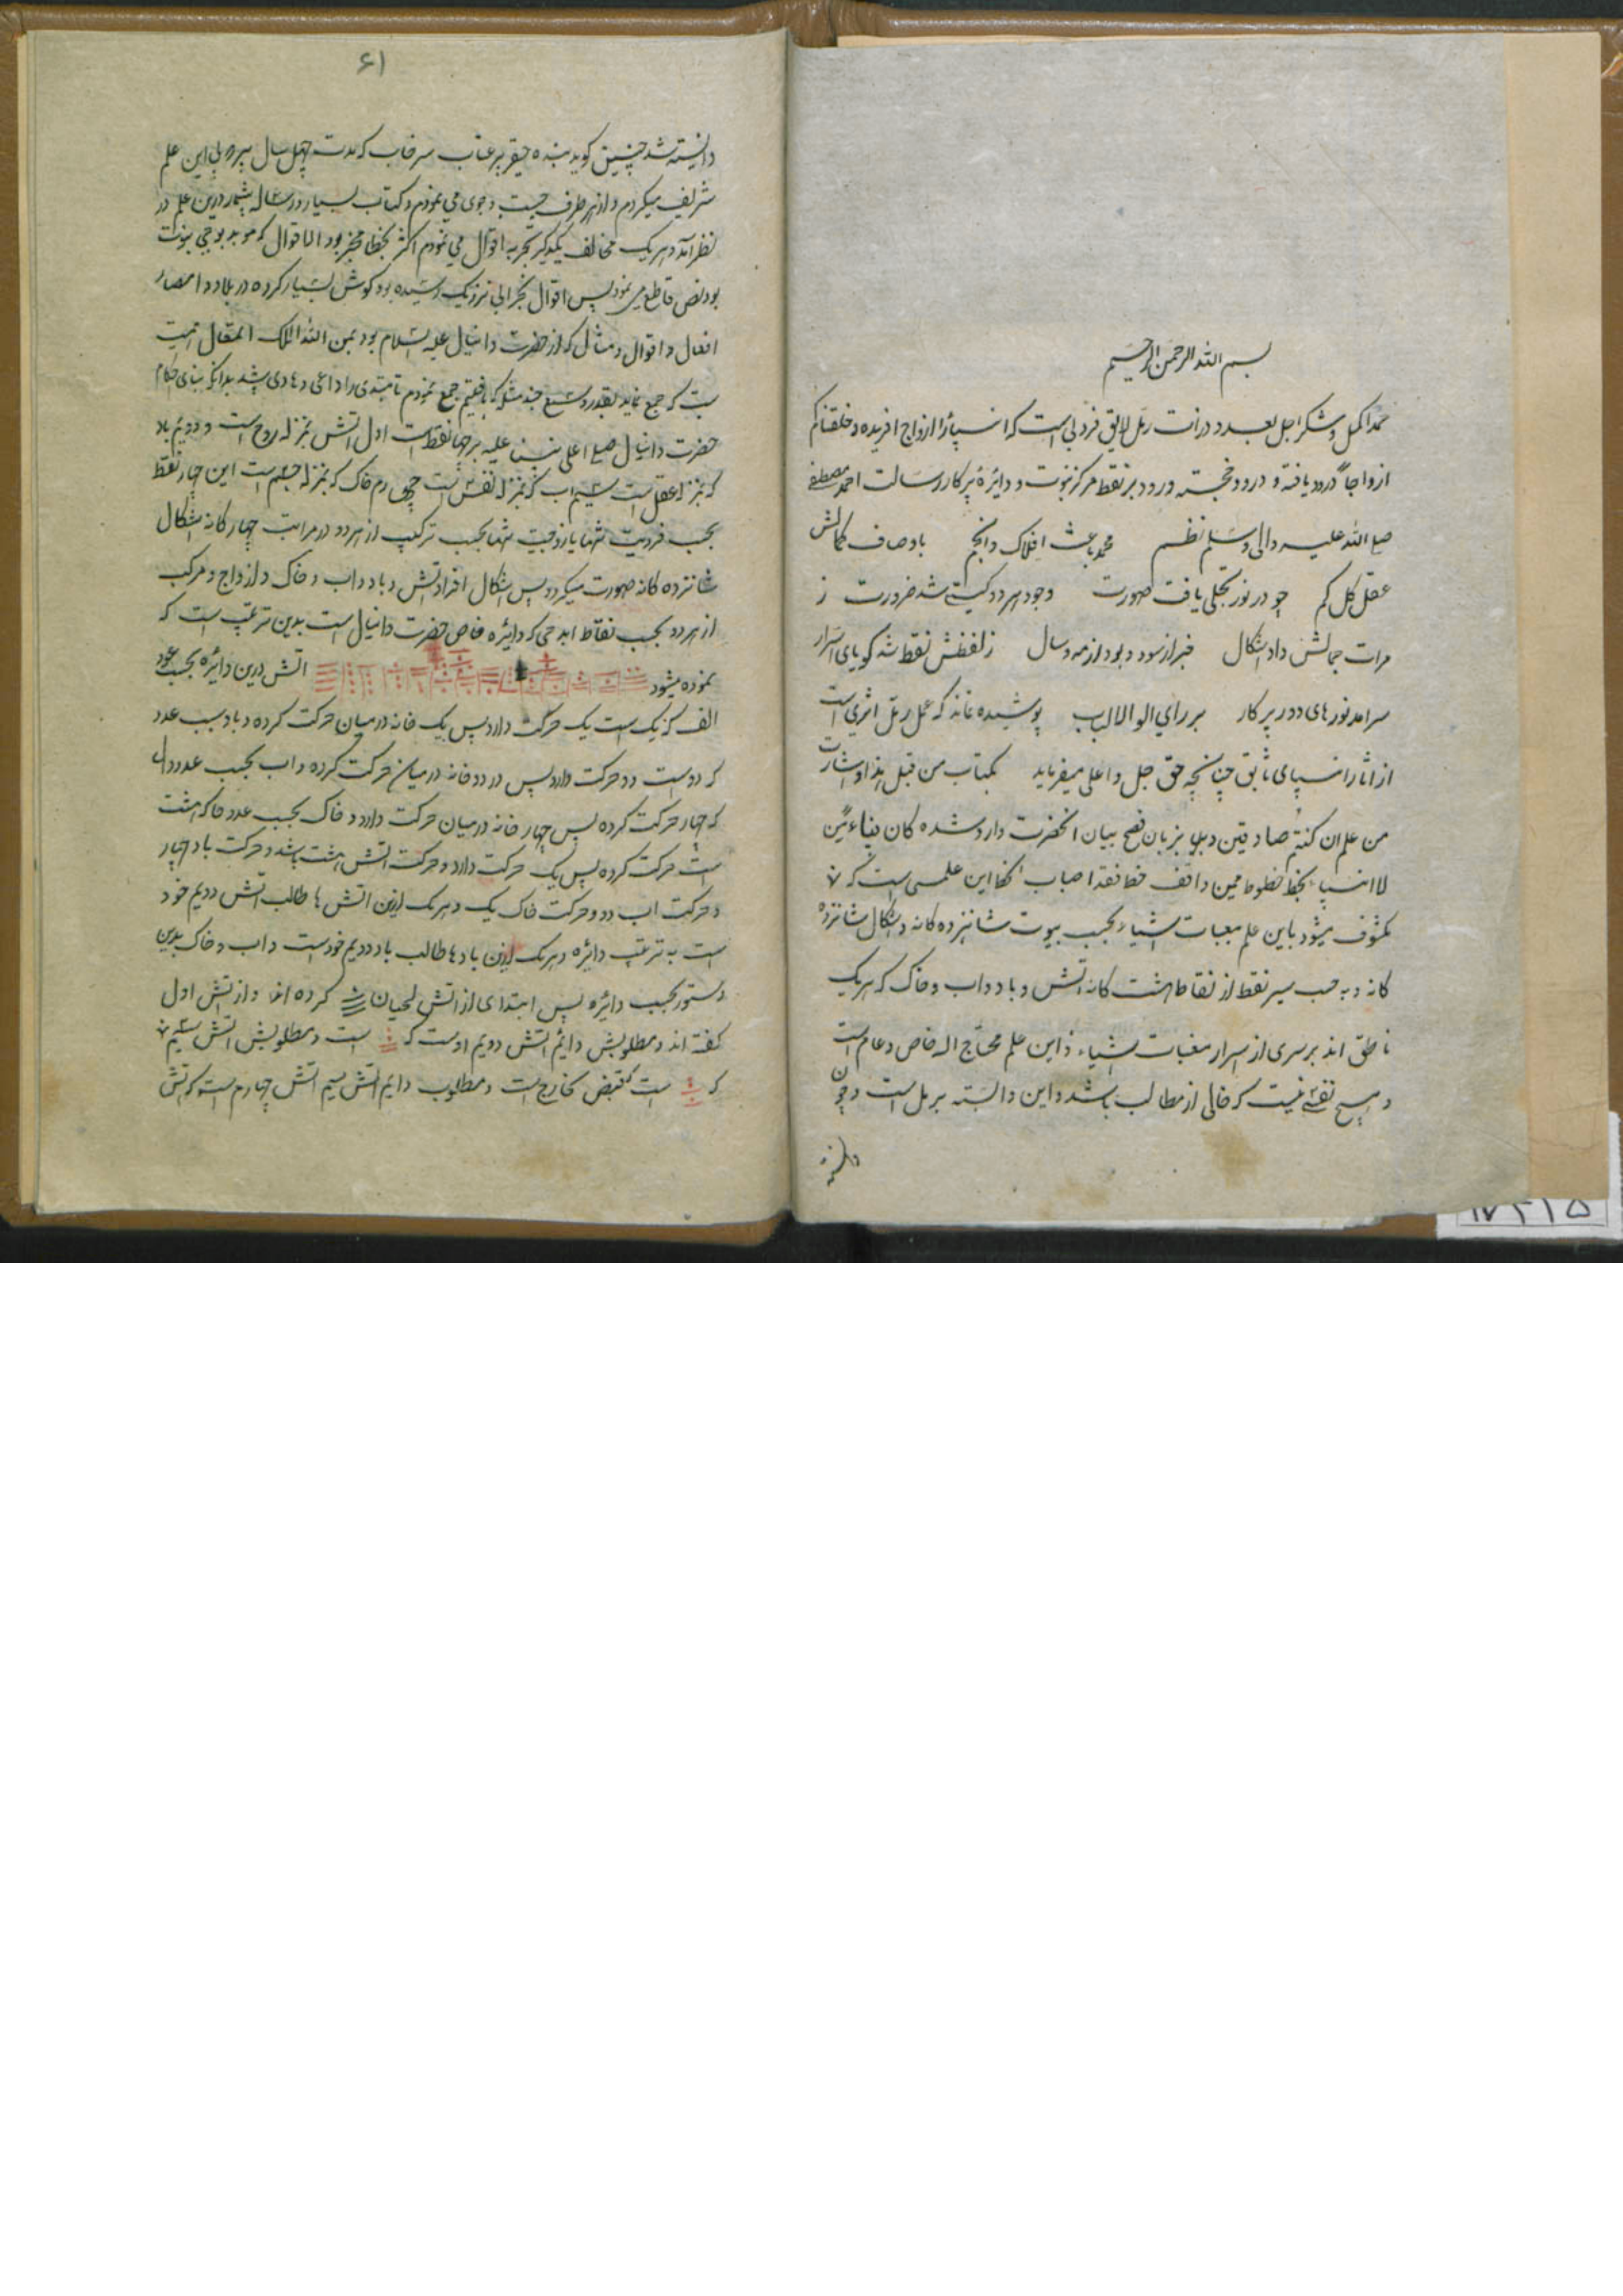 بسم الله الرحمن الرحیم
حمد اکمل و شکر اجل بعدد ذرات رمل لایق فردی است که اشیا را ازواج افریده و خلقناکم
ازواجا گردد یافته و درود خجسته ورود بر نقطه مرکز نبوت و دایرۀ پرکار رسالت احمد مصطفی
صلی الله علیه و الی و سلم نظم محمد باعث افلاک و انجم باوصاف کمالش
عقل کل کم چو در نور تجلی یافت صورت وجود هر دو گیتی شد ضرورت ز
مرات جمالش داد اشکال خبر از سود و بود از مه و سال ز لفظش نقطه شد گویای اسرار
سرامد نورهای دور پرکار بر رای الوالالباب پوشیده نماند که عمل رمل اثری است
از اثار انبیای سابق چنانچه حق جل و اعلی میفرماید بکتاب من قبل هذا او اثارت
من علم ان کنتم صادقین و بزبان فصح بیان انحضرت وارد شده کان نبیاء من
لاانبیاء یخط خطوط فمن وافق خط فقد اصاب کفا این علمی است که
مکشوف میشود باین علم مغیبات اشیاء بحسب بیوت شانزده کانه و اشکال شانزده
کانه و به حسب سیر نقطه از نقاط هشت کانه اتش و باد و اب و خاک که هر یک
ناطق اند بر سری از اسرار مغیبات اشیاء و این علم محتاج اله خاص و عام است
و هیچ نفسی نیست که خالی از مطالب باشد و این وابسته برمل است و چون
دانسته
۶۱
دانسته شد چنین کوید بنده حقیر سرخاب که مدت چهل سال پیروی این علم
شریف میکردم و از هر طرف جست و جوی می نمودم و کتاب بسیار و رساله بیشمار درین علم در
نظر آمد و هر یک مخالف یکدیگر تجربه اقوال می نمودم اکثر بخطا منجر بود الا اقوال که موید بوحی نبوت
بود نص قاطع می نمود پس اقوال نزدیک رسیده بود کوشش بسیار کرده در بلاد و امصار
افعال و اقوال و مثال که از حضرت دانیال علیه السلام بود بمن الله الملک المتعال
که جمع نماید بقدر وسع چند مثل که یافتیم جمع نمودم تا مبتدی را داعی و هادی باشد بدانکه بنای احکام
حضرت دانیال صلی علی نبینا علیه بر چهار نقطه است اول اتش بمنزله روح است و دویم باد
که بمنزله عقل است سیم اب که بمنزله نفس است چهارم خاک که بمنزله جسم است این چهار نقطه
بحسب فردیت شما یا زوجیت شما بحسب ترکیب از هر دو در مراتب چهارکانه اشکال
شانزده کانه صورت میکردد پس اشکال افراد اتش و باد و اب و خاک و ازواج و مرکب
از هر دو بحسب نقاط ابدحی که دایره خاص حضرت دانیال است بدین ترتیب است که
نموده میشود اتش درین دائره بحسب عدد
الف که یک است یک حرکت دارد پس یک خانه در میان حرکت کرده و باد بسبب عدد
که دوست دو حرکت دارد پس در دو خانه در میان حرکت کرده و اب بحسب عدد دال
که چهار حرکت کرده پس چهار خانه در میان حرکت دارد و خاک بحسب عدد حا که هشت
است حرکت کرده پس یک حرکت دارد و حرکت اتش هشت باشد و حرکت باد چهار
و حرکت اب دو و حرکت خاک یک و هر یک ازین اتش ها طالب اتش دویم خود
است به ترتیب دایره و هر یک ازین بادها طالب باد دویم خودست و اب و خاک بدین
دستور بحسب دائره پس ابتدای از اتش لحیان کرده اند و از اتش اول
کفته اند و مطلوبش دایم اتش دویم اوست که است و مطلوبش اتش سیم
که است که قبض خارج است و مطلوب دایم اتش سیم اتش چهارم است که اتش